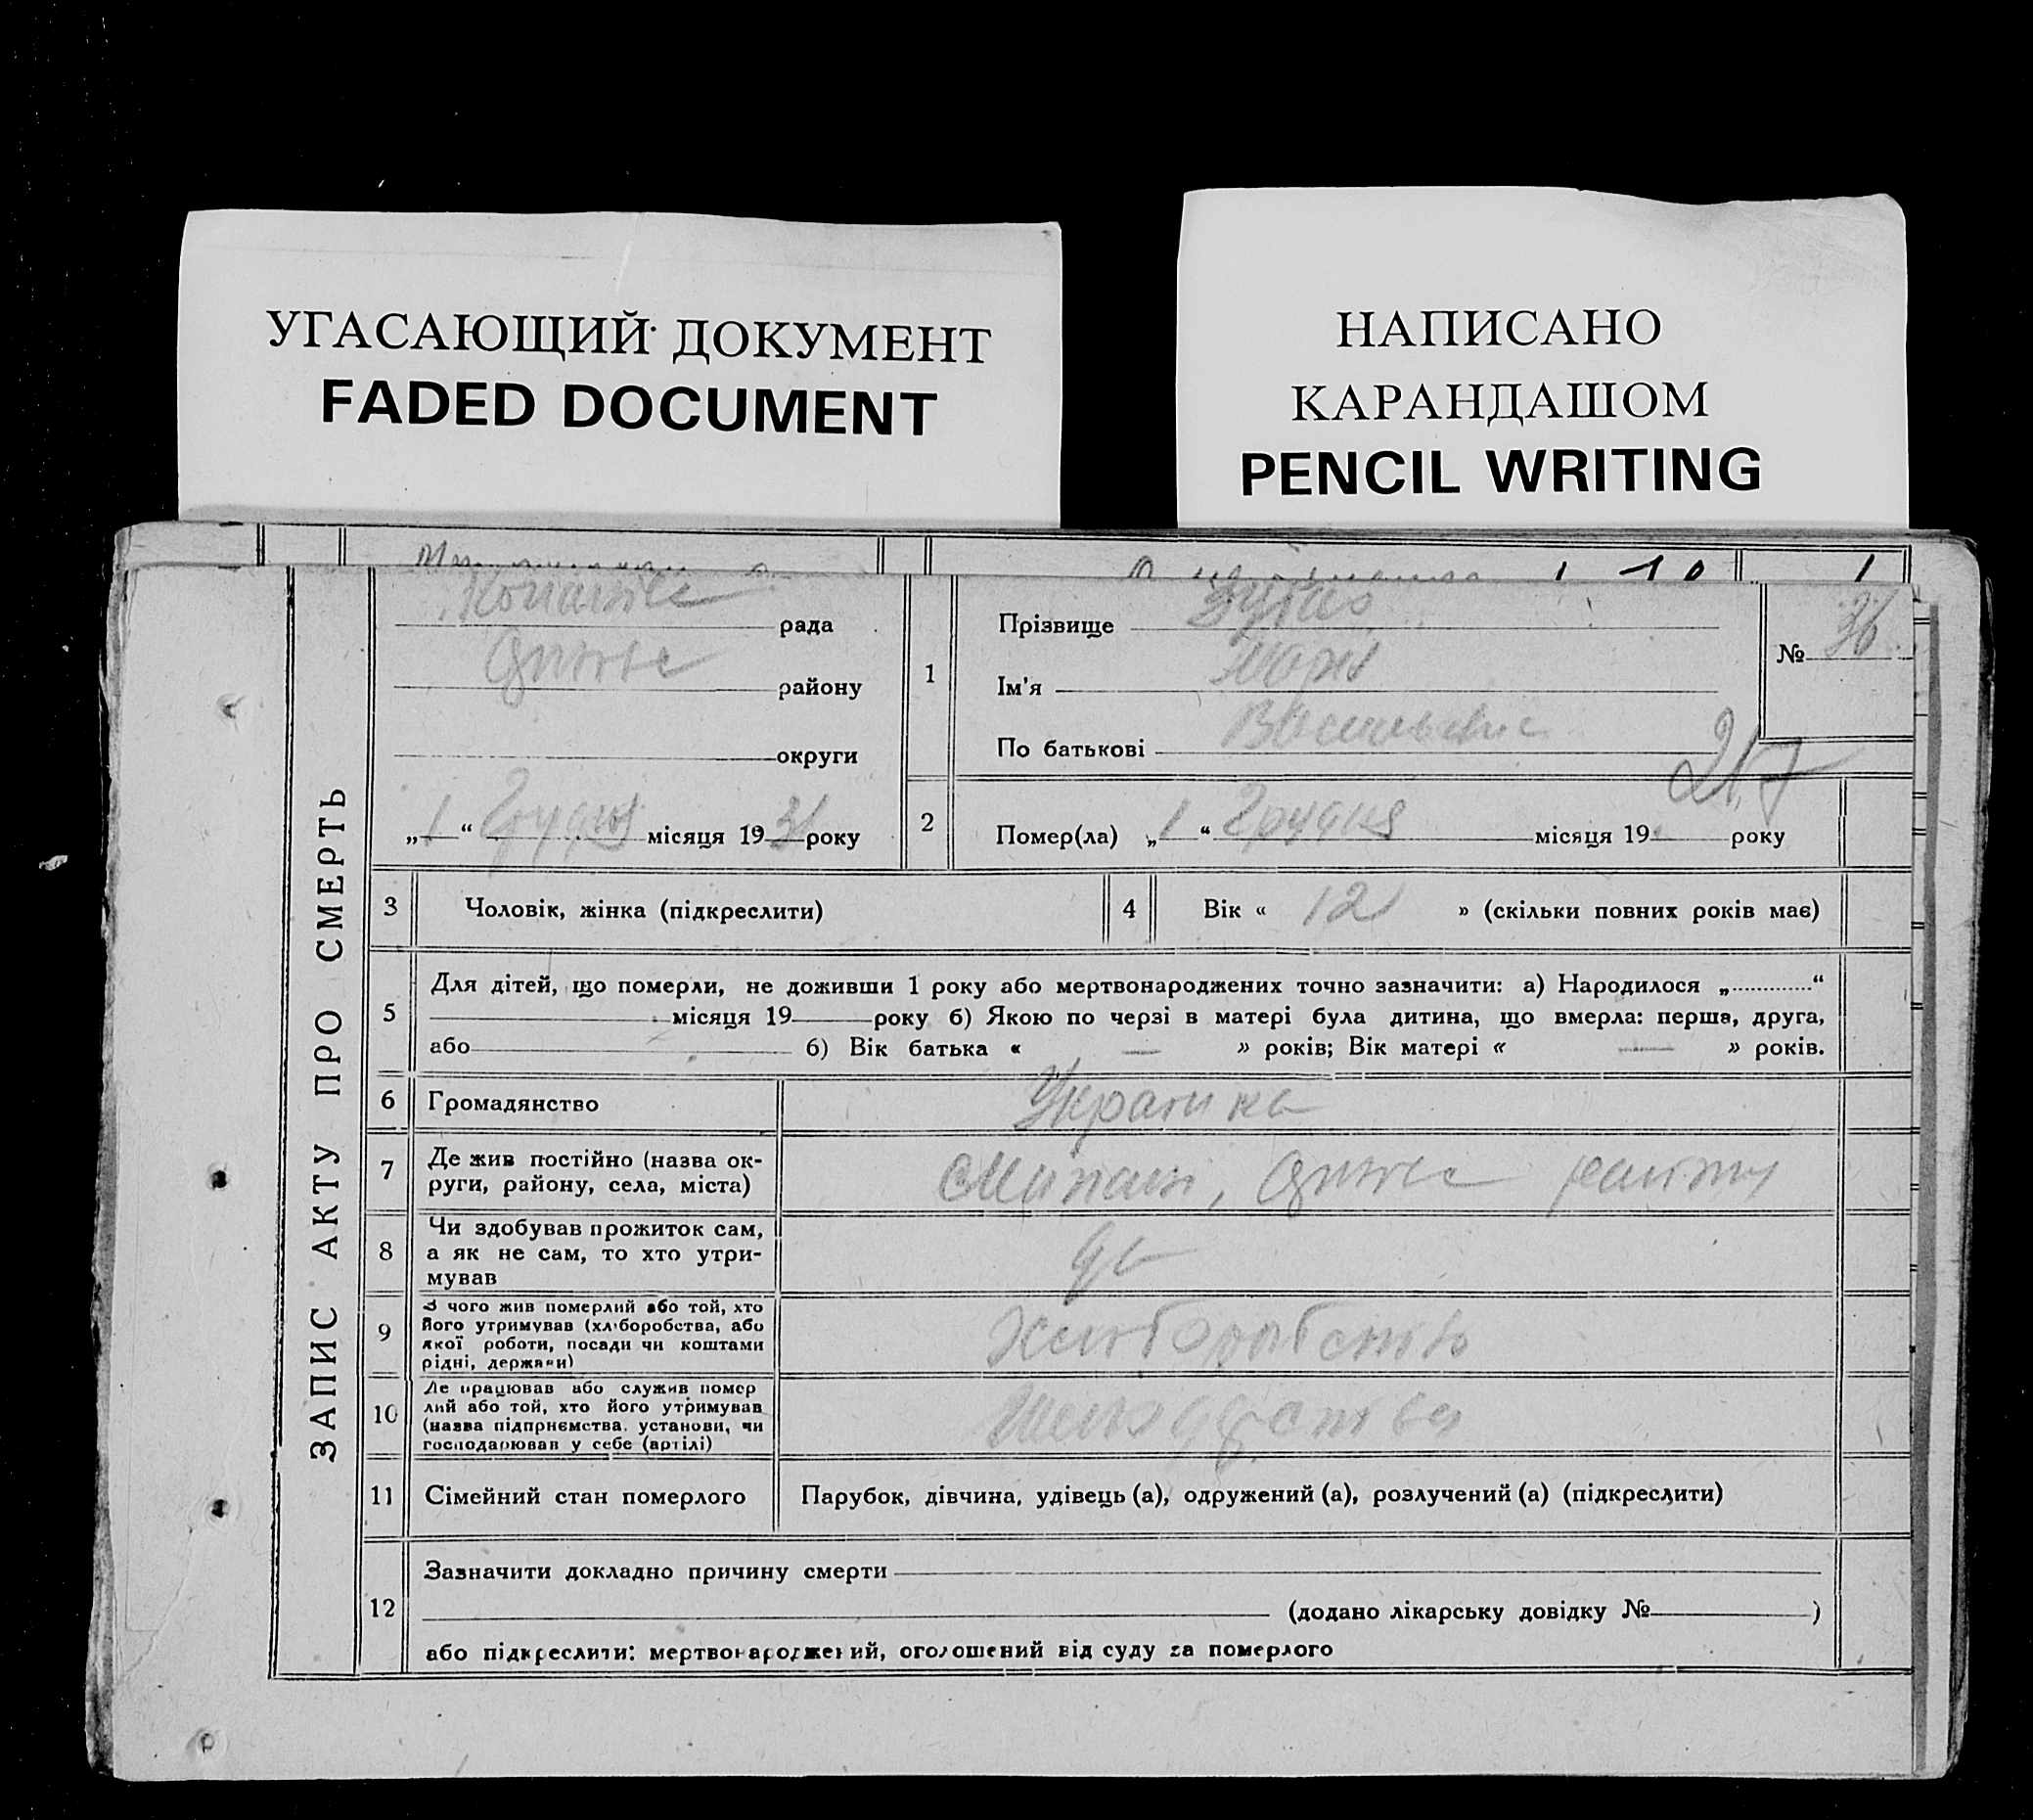 УГАСАЮЩИЙ ДОКУМЕНТ
FADED DOCUMENT
НАПИСАНО
КАРАНДАШОМ
PENCIL WRITING
ЗАПИС АКТУ ПРО СМЕРТЬ
рада
району
округи
„1“ Грудня місяця 1931 року
1
Прізвище
Ім'я
По батькові
№ 36
217
2 Помер(ла) „1“ Грудня місяця 19 року
3 Чоловік, жінка (підкреслити)
4 Вік « 12 » (скільки повних років має)
5 Для дітей, що померли, не доживши 1 року або мертвонароджених точно зазначити: а) Народилося „ “
місяця 19 року б) Якою по черзі в матері була дитина, що вмерла: перша, друга,
або б) Вік батька « — » років; Вік матері « — » років.
6 Громадянство Украинка
7 Де жив постійно (назва ок-
руги, району, села, міста)
8 Чи здобував прожиток сам,
а як не сам, то хто утри-
мував
9 З чого жив померлий або той, хто
його утримував (хліборобства, або
якої роботи, посади чи коштами
рідні, держави)
10 Де працював або служив помер
лий або той, хто його утримував
(назва підприємства, установи, чи
господарював у себе (артілі)
11 Сімейний стан померлого Парубок, дівчина, удівець (а), одружений (а), розлучений (а) (підкреслити)
12 Зазначити докладно причину смерти
(додано лікарську довідку № )
або підкреслити: мертвонароджений, оголошений від суду за померлого